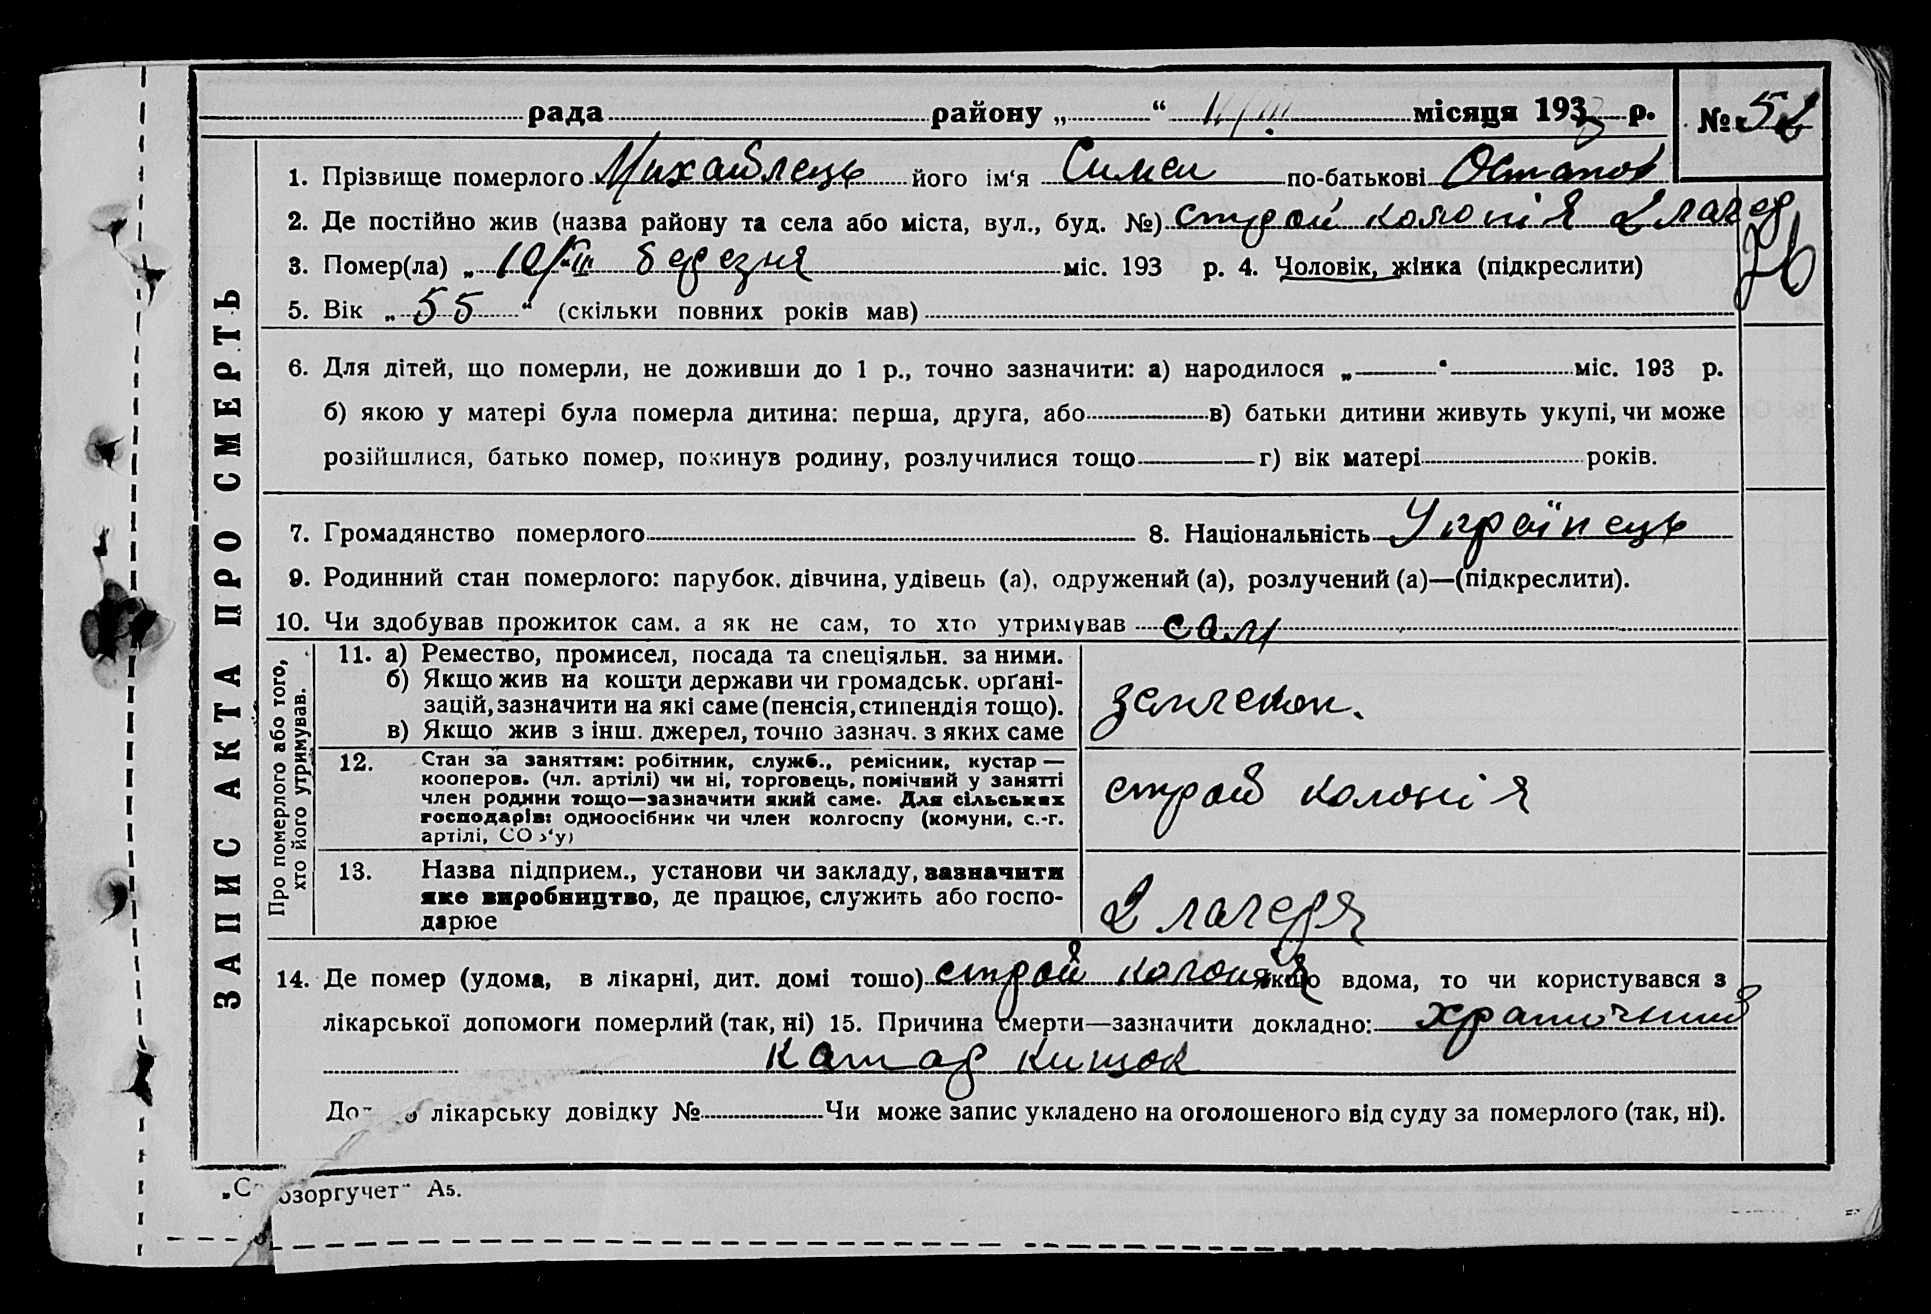 рада району „ “ 11/III місяця 1933 р. № 52
1. Прізвище померлого Михайлець його ім‘я Симен по-батькові Остапов
2. Де постійно жив (назва району та села або міста, вул., буд. №) строй колонія 2 лагер
3. Помер(ла) „ 10/III березня міс. 193 р. 4. Чоловік, жінка (підкреслити)
76
5. Вік „ 55 “ (скільки повних років мав)
6. Для дітей, що померли, не доживши до 1 р., точно зазначити: а) народилося „ “ міс. 193 р.
б) якою у матері була померла дитина: перша, друга, або в) батьки дитини живуть укупі, чи може
розійшлися, батько помер, покинув родину, розлучилися тощо г) вік матері років.
7. Громадянство померлого 8. Національність Українець
9. Родинний стан померлого: парубок, дівчина, удівець (а), одружений (а), розлучений (а)—(підкреслити).
10. Чи здобував прожиток сам, а як не сам, то хто утримував сам
ЗАПИС АКТА ПРО СМЕРТЬ
Про померлого або того,
хто його утримував.
11. а) Ремество, промисел, посада та спеціяльн. за ними.
б) Якщо жив на кошти держави чи громадськ. орґані-
зацій, зазначити на які саме (пенсія, стипендія тощо).
в) Якщо жив з інш. джерел, точно зазнач. з яких саме
землекоп.
12. Стан за заняттям: робітник, служб., ремісник, кустар —
кооперов. (чл. артілі) чи ні, торговець, помічний у занятті
член родини тощо—зазначити який саме. Для сільських
господарів: одноосібник чи член колгоспу (комуни, с.-г.
артілі, СО з‘у)
строй колонія
13. Назва підприєм., установи чи закладу, зазначити
яке виробництво, де працює, служить або госпо-
дарює
2 лагеря
14. Де помер (удома, в лікарні, дит. домі тощо) строй колонія Якщо вдома, то чи користувався з
лікарської допомоги померлий (так, ні) 15. Причина смерти—зазначити докладно: хранічний
катар кишок
До лікарську довідку № Чи може запис укладено на оголошеного від суду за померлого (так, ні).
„С озоргучет“ А5.